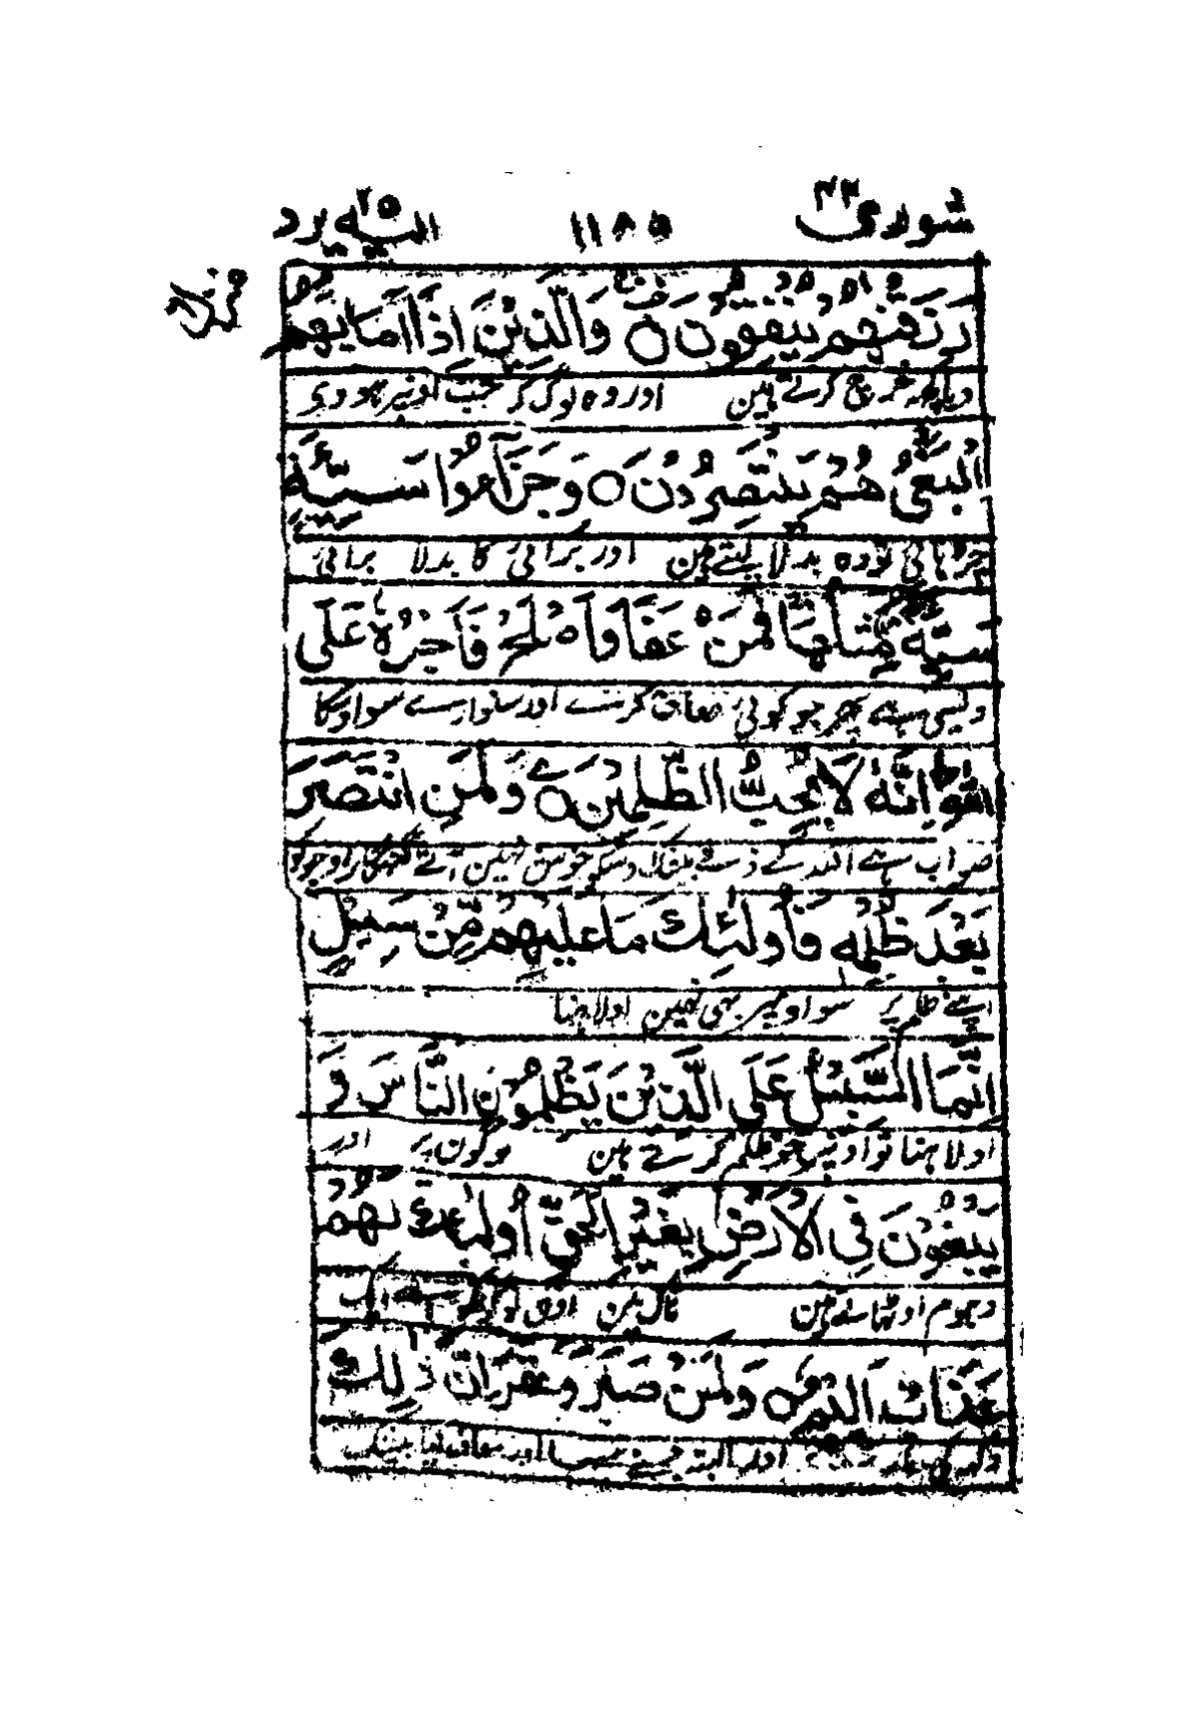 شوریٰ ۴۲ ۱۱۸۵ الیه یرد ۲۵
منزل
رَزَقْنٰهُمْ يُنْفِقُوْنَ ○ وَالَّذِيْنَ اِذَاۤ اَصَابَهُمُ
دیا کچھ خرچ کرتے ہین اور وہ لوگ کر جب
الْبَغْيُ هُمْ يَنْتَصِرُوْنَ ○ وَجَزٰٓؤُا سَيِّئَةٍ
تو وہ بدلا لیتے ہین اور برائی کا بدلا برائی
سَيِّئَةٌ مِّثْلُهَا فَمَنْ عَفَا وَاَصْلَحَ فَاَجْرُهٗ عَلَى
ویسی ہے پھر جو کوئی معاف کرے اور سنوارے سو اوسکا
اللّٰهِ ط اِنَّهٗ لَا يُحِبُّ الظّٰلِمِيْنَ ○ وَلَمَنِ انْتَصَرَ
ثواب ہے اللہ کے ذمے بیشک اوسکو خوش نہین آتے گنہگار اور جو کو
بَعْدَ ظُلْمِهٖ فَاُولٰٓئِكَ مَا عَلَيْهِمْ مِّنْ سَبِيْلٍ
اپنے ظلم پر سو اونپر بھی نہین اولاہنا
اِنَّمَا السَّبِيْلُ عَلَى الَّذِيْنَ يَظْلِمُوْنَ النَّاسَ وَ
اولاہنا تو اونپر جو ظلم کرتے ہین لوگون پر اور
يَبْغُوْنَ فِي الْاَرْضِ بِغَيْرِ الْحَقِّ اُولٰٓئِكَ لَهُمْ
دھوم اوٹھاتے ہین
عَذَابٌ اَلِيْمٌ ○ وَلَمَنْ صَبَرَ وَغَفَرَ اِنَّ ذٰلِكَ
اور البتہ جسنے سہا اور معاف کیا بیشک